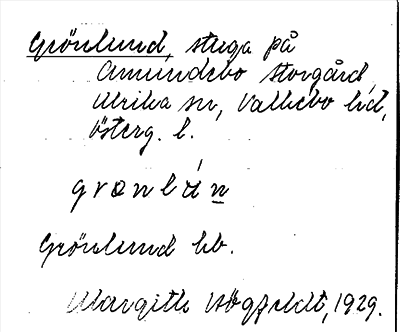 Grönlund, stuga på
Amundebo storgård,
Ulrika sn, Valkebo hd,
Österg. l.
grɷnlún
Grönlund hb.
Margith Högfeldt, 1929.